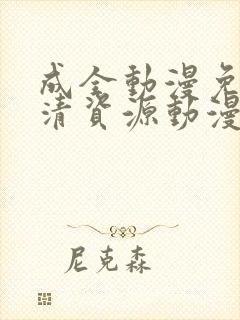 成全動漫免
清資源動漫
尼克森